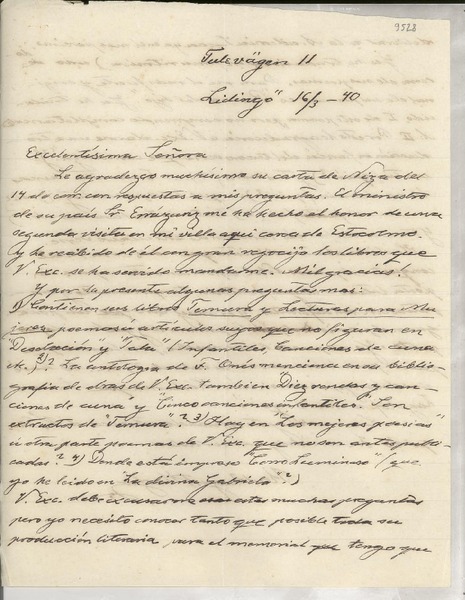 9528
Tulevägen 11
Lidingö 16/3 - 40
Excelentísima Señora
Le agradezco muchísimo su carta de Niza del
14 de corr. con respuestas a mis preguntas. El ministro
de su país Sr. Errazuriz me ha hecho el honor de una
segunda visita en mi villa aquí cerca de Estocolmo
y he recibido de él con gran regocijo los libros que
V. Exc. se ha servido mandarme. Mil gracias!
Y por su presente algunas preguntas mas:
1) Contienen sus libros Ternura y Lecturas para Mu-
jeres poemas ú artículos suyos que no figuran en
"Desolación" y "Tala" (Infantiles, Canciones de cuna
etc.)? 2) La antología de F. Onís menciona en su biblio-
grafía de obras de V. Exc. tambien "Diez rondas y can-
ciones de cuna" y "Cinco canciones infantiles". Son
extractos de "Ternura"? 3) Hay en "Las mejores poesías"
ú otra parte poemas de V. Exc. que no son antes publi-
cadas? 4) Donde está impreso "Coro Luminoso" (que
yo he leido en La divina Gabriela"?)
V. Exc. debe excusarme esas estas muchas preguntas
pero yo necesito conocer tanto que posible toda su
producción literaria, para el memorial que tengo que